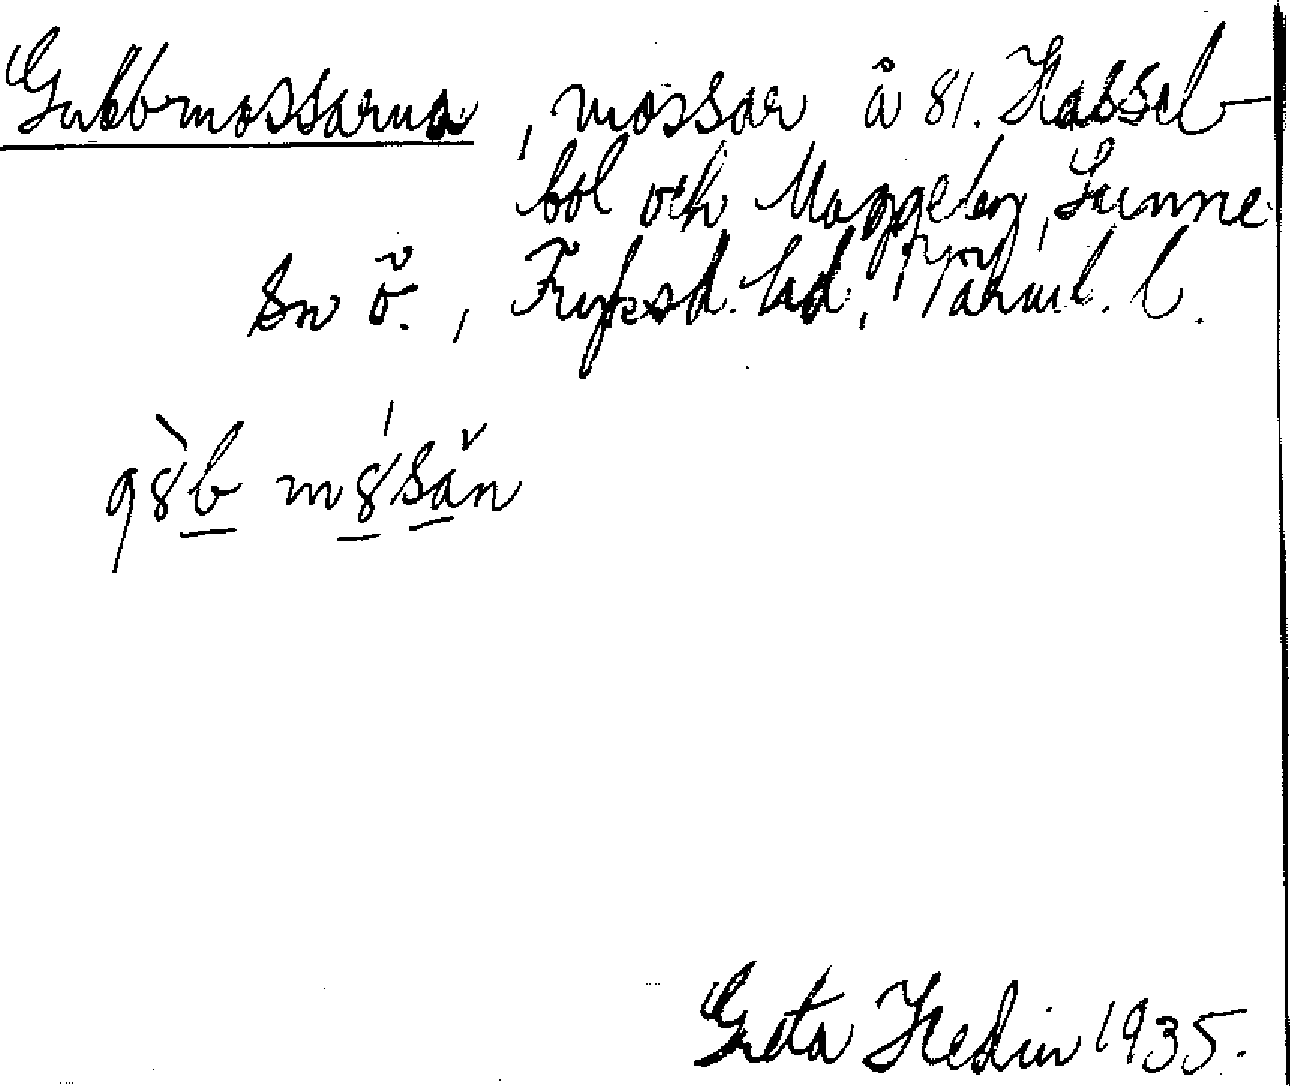 Gubbmossarna, mossar å 81. Hassel-
bol och Maggeby, Sunne
sn ö., Fryksd. hd, Värml. l.
g8̀b m8́sa̽n
Greta Hedin 1935.